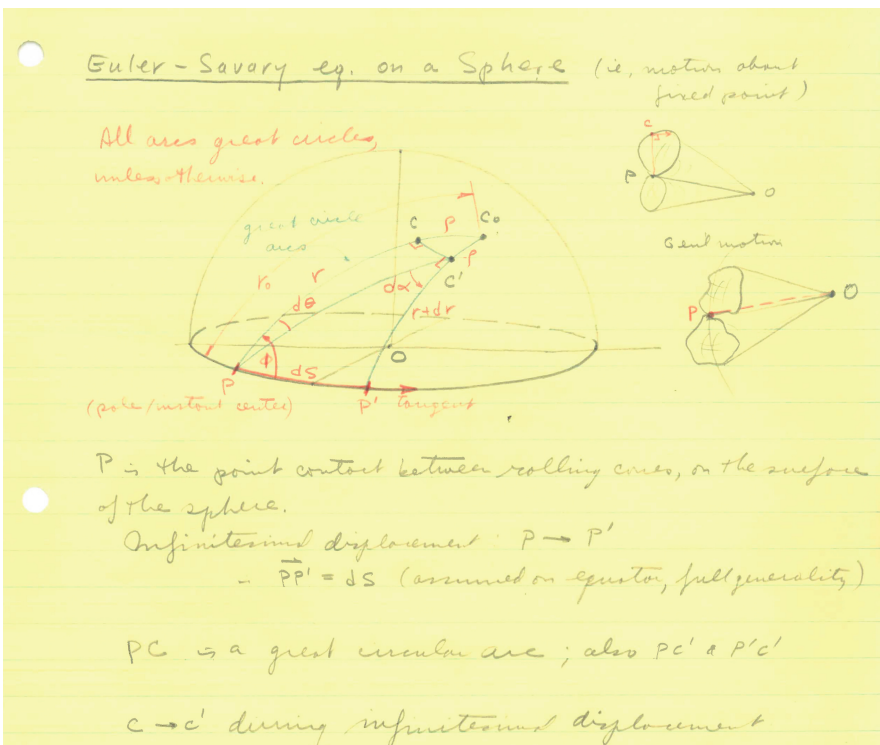 Euler-Savary eq. on a Sphere (ie, motion about
fixed point)
All arcs great circles,
unless otherwise.
great circle
arcs
r₀
r
ρ
C
C₀
C'
ρ
dα
dθ
r+dr
ϕ
dS
O
P
P'
tangent
(pole/instant center)
C
P
O
Gen'l motion
P
O
P is the point contact between rolling cones, on the surface
of the sphere.
Infinitesimal displacement: P → P'
- PP' = dS (assumed on equator, full generality)
PC is a great circular arc; also PC' & P'C'
C → C' during infinitesimal displacement